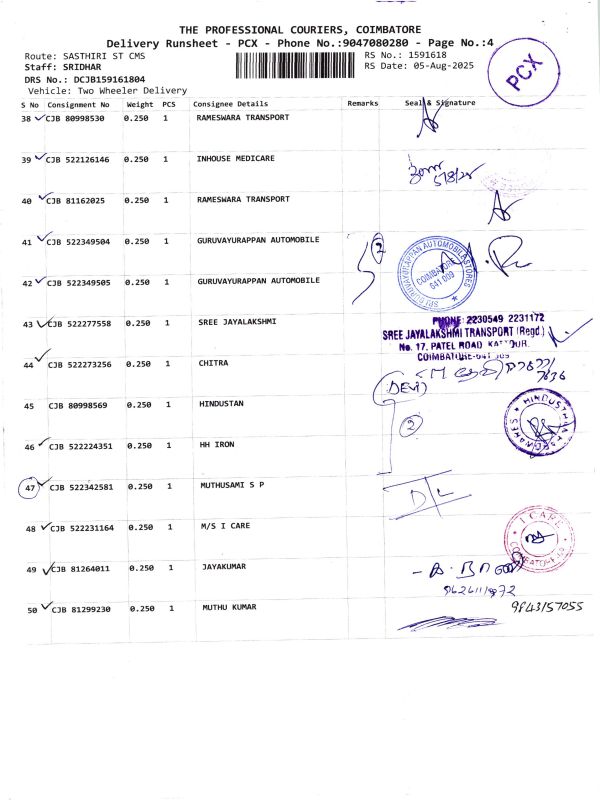 THE PROFESSIONAL COURIERS, COIMBATORE
Delivery Runsheet - PCX - Phone No.:9047080280 - Page No.:4
Route: SASTHIRI ST CMS
RS No.: 1591618
Staff: SRIDHAR
RS Date: 05-Aug-2025
DRS No.: DCJB159161804
Vehicle: Two Wheeler Delivery
PCX
S No Consignment No Weight PCS Consignee Details Remarks Seal & Signature
38 CJB 80998530 0.250 1 RAMESWARA TRANSPORT
39 CJB 522126146 0.250 1 INHOUSE MEDICARE
5/8/25
40 CJB 81162025 0.250 1 RAMESWARA TRANSPORT
41 CJB 522349504 0.250 1 GURUVAYURAPPAN AUTOMOBILE
2
SRI GURUVAYURAPPAN AUTOMOBILE STORES
COIMBATORE
641 009
42 CJB 522349505 0.250 1 GURUVAYURAPPAN AUTOMOBILE
43 CJB 522277558 0.250 1 SREE JAYALAKSHMI
PHONE: 2230549 2231172
SREE JAYALAKSHMI TRANSPORT (Regd.)
No. 17, PATEL ROAD KATTOOR.
COIMBATORE-641 009
44 CJB 522273256 0.250 1 CHITRA
(DEVI)
45 CJB 80998569 0.250 1 HINDUSTAN
2
46 CJB 522224351 0.250 1 HH IRON
47 CJB 522342581 0.250 1 MUTHUSAMI S P
D/L
48 CJB 522231164 0.250 1 M/S I CARE
I CARE
COIMBATORE
49 CJB 81264011 0.250 1 JAYAKUMAR
50 CJB 81299230 0.250 1 MUTHU KUMAR
9843157055